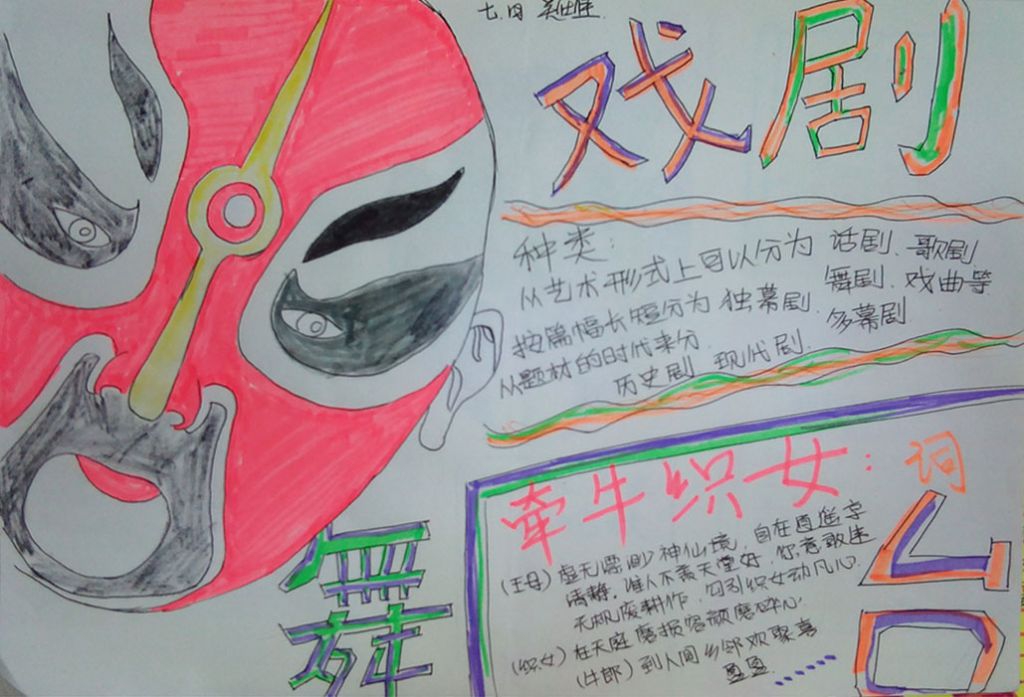 戏剧
种类：
从艺术形式上可以分为 话剧、歌剧
舞剧、戏曲等
按篇幅长短分为 独幕剧、多幕剧
从题材的时代来分
历史剧 现代剧.
牵牛织女：词
(王母) 虚无 神仙境，自在逍遥享
清静，谁人不羡天堂好，你竟敢迷
无机废耕作，勾引织女动凡心.
(织女) 在天庭磨损容颜磨碎心
(牛郎) 到人间乡邻欢聚喜
盈盈.
舞
台